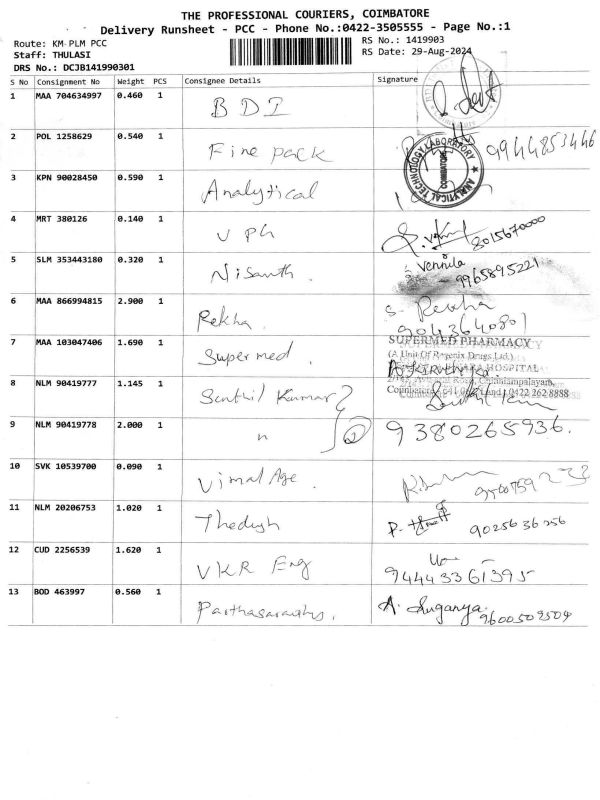 THE PROFESSIONAL COURIERS, COIMBATORE
Delivery Runsheet - PCC - Phone No.:0422-3505555 - Page No.:1
Route: KM-PLM PCC
RS No.: 1419903
Staff: THULASI
RS Date: 29-Aug-2024
DRS No.: DCJB141990301
S No Consignment No Weight PCS Consignee Details Signature
1 MAA 704634997 0.460 1 BDI
2 POL 1258629 0.540 1 Fine pack 9944853446
3 KPN 90028450 0.590 1 Analytical
ANALYTICAL TECHNOLOGY LABORATORY
COIMBATORE
4 MRT 380126 0.140 1 V Ph 8015670000
5 SLM 353443180 0.320 1 Nisanth. Vennila 9965895221
6 MAA 866994815 2.900 1 Rekha. S. Rekha
9043640801
7 MAA 103047406 1.690 1 Supermed.
SUPERMED PHARMACY
HOSPITAL
8 NLM 90419777 1.145 1 Senthil Kumar
0422 262 8888
9 NLM 90419778 2.000 1 " 2 9380265936.
10 SVK 10539700 0.090 1 Vimal Age.
11 NLM 20206753 1.020 1 9025636256
12 CUD 2256539 1.620 1 VKR Eng
94443361395
13 BOD 463997 0.560 1 A. Suganya. 9600509504